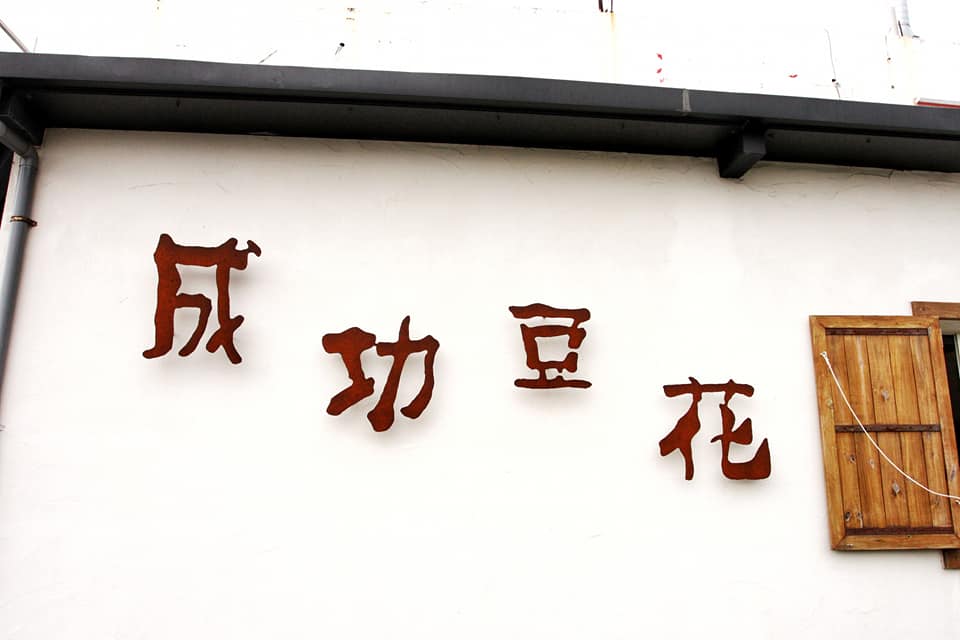 成功豆花